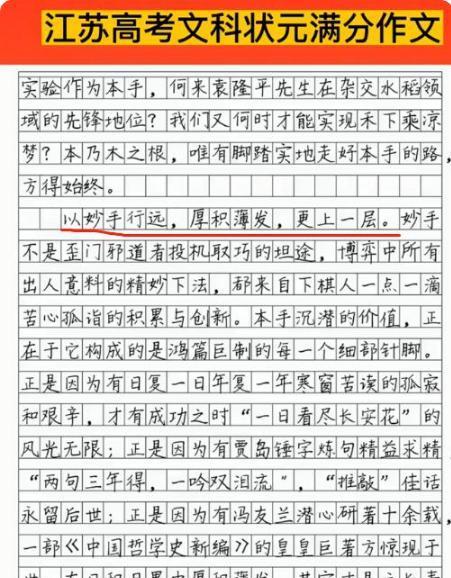 江苏高考文科状元满分作文
实验作为本手，何来袁隆平先生在杂交水稻领
域的先锋地位？我们又何时才能实现禾下乘凉
梦？本乃木之根，唯有脚踏实地走好本手的路，
方得始终。
以妙手行远，厚积薄发，更上一层。妙手
不是歪门邪道者投机取巧的坦途，博弈中所有
出人意料的精妙下法，都来自下棋人一点一滴
苦心孤诣的积累与创新。本手沉潜的价值，正
在于它构成的是鸿篇巨制的每一个细部针脚。
正是因为有日复一日年复一年寒窗苦读的孤寂
和艰辛，才有成功之时“一日看尽长安花”的
风光无限；正是因为有贾岛锤字炼句精益求精，
“两句三年得，一吟双泪流”，“推敲”佳话
永留后世；正是因为有冯友兰潜心研著十余载，
一部《中国哲学史新编》的皇皇巨著方惊现于